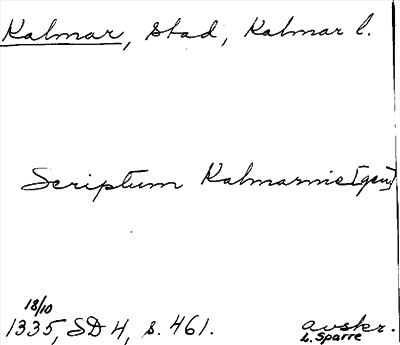 Kalmar, Stad, Kalmar l.
Scriptum Kalmarnie [gen]
18/10
1335, SD 4, s. 461.
avskr.
L. Sparre